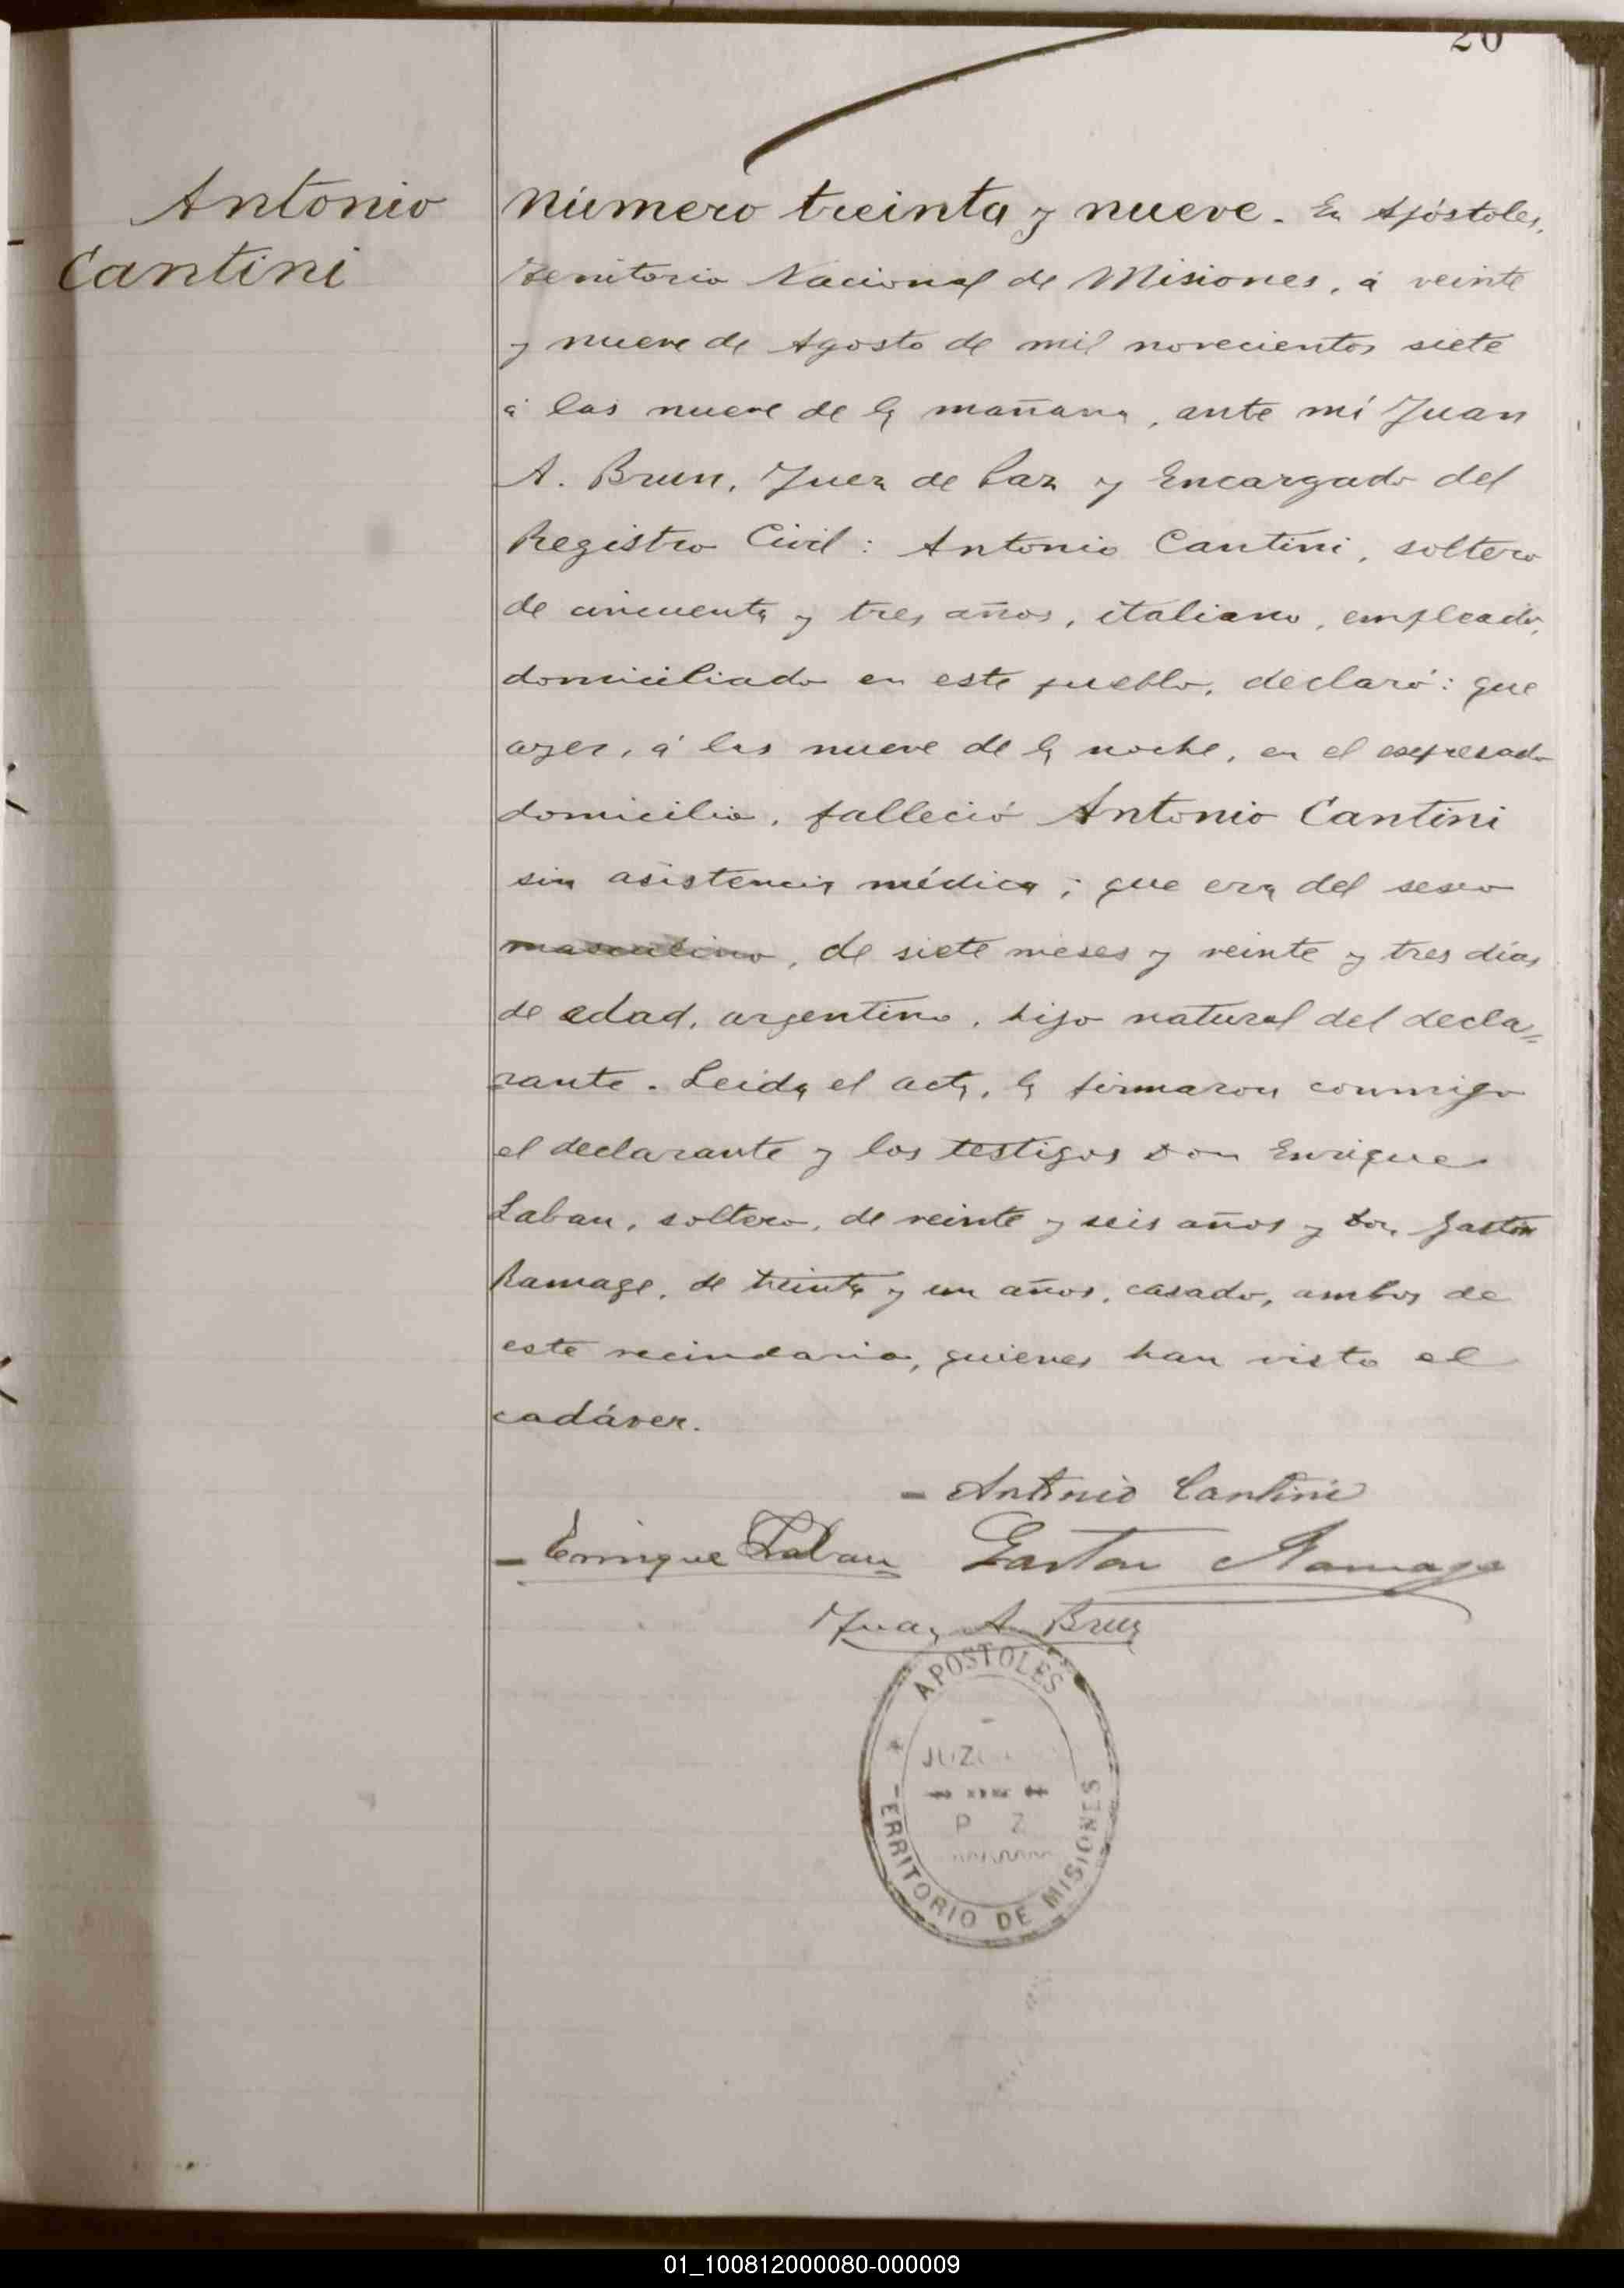 20
Antonio
Cantini
Número treinta y nueve. En Apóstoles,
Territorio Nacional de Misiones, á veinte
y nueve de Agosto de mil novecientos siete
á las nueve de la mañana, ante mí Juan
A. Brun, Juez de Paz y Encargado del
Registro Civil: Antonio Cantini, soltero
de cincuenta y tres años, italiano, empleado,
domiciliado en este pueblo, declaró: que
ayer, á las nueve de la noche, en el expresado
domicilio, falleció Antonio Cantini
sin asistencia médica; que era del sexo
masculino, de siete meses y veinte y tres días
de edad, argentino, hijo natural del decla=
rante. Leida el acta, la firmaron conmigo
el declarante y los testigos Don Enrique
Laban, soltero, de veinte y seis años y Don Gastón
Ramage, de treinta y un años, casado, ambos de
este vecindario, quienes han visto el
cadáver.
- Antonio Cantini
- Enrique Laban Gaston Ramage
Juan A. Brun
APOSTOLES
JUZ
P Z
ERRITORIO DE MISIONES
01_100812000080-000009